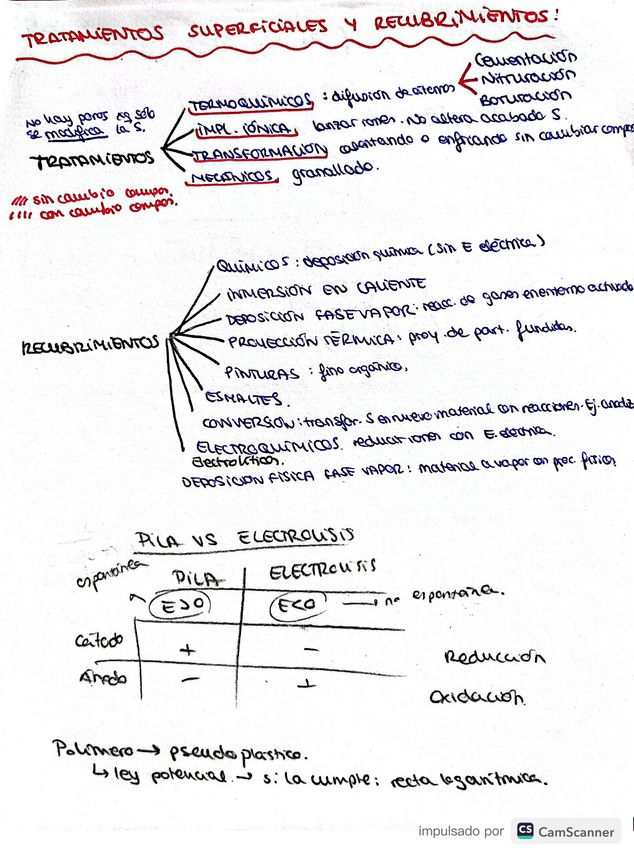 TRATAMIENTOS SUPERFICIALES Y RECUBRIMIENTOS!
No hay poros sólo
se modifica la S.
TRATAMIENTOS
TERMOQUÍMICOS : difusión de átomos
Cementación
Nitruración
Boruración
IMPL. IÓNICA, lanzar iones. No altera acabado S.
TRANSFORMACIÓN calentando o enfriando sin cambiar compos
MECÁNICOS, granallado.
//// sin cambio compos.
//// con cambio compos.
RECUBRIMIENTOS
QUÍMICOS : deposición química (sin E eléctrica)
INMERSIÓN EN CALIENTE
DEPOSICIÓN FASE VAPOR: reacc. de gases en entorno activado
PROYECCIÓN TÉRMICA: proy. de part. fundidas.
PINTURAS : fino orgánico.
ESMALTES.
CONVERSIÓN: transfor. S en nuevo material con reacciones. Ej. anodiz
ELECTROQUÍMICOS. reducir iones con E. eléctrica.
Electrolíticos.
DEPOSICIÓN FÍSICA FASE VAPOR: material a vapor con proc. físicos
PILA VS ELECTROLISIS
espontánea
PILA ELECTROLISIS
E>0 E<0 → no espontánea.
Cátodo + - Reducción
Ánodo - + Oxidación
Polímero → pseudoplástico.
↳ ley potencial → si la cumple: recta logarítmica.
impulsado por CS CamScanner